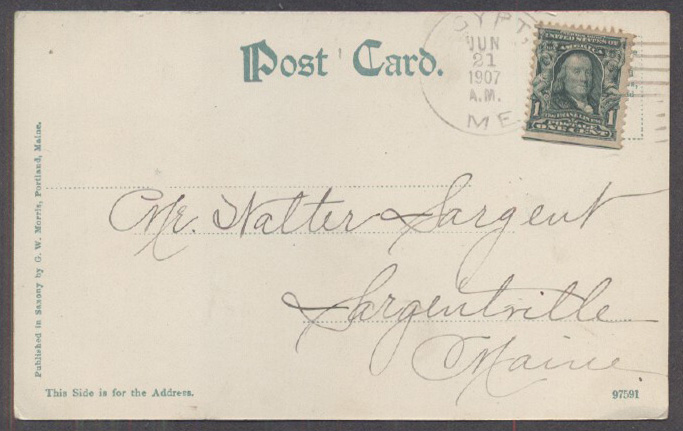 Post Card.
JUN
21
1907
A.M.
ME.
UNITED STATES OF
AMERICA
1 1
POSTAGE
ONE CENT
Mr. Walter Sargent
Sargentville
Maine.
Published in Saxony by G. W. Morris, Portland, Maine.
This Side is for the Address.
97591